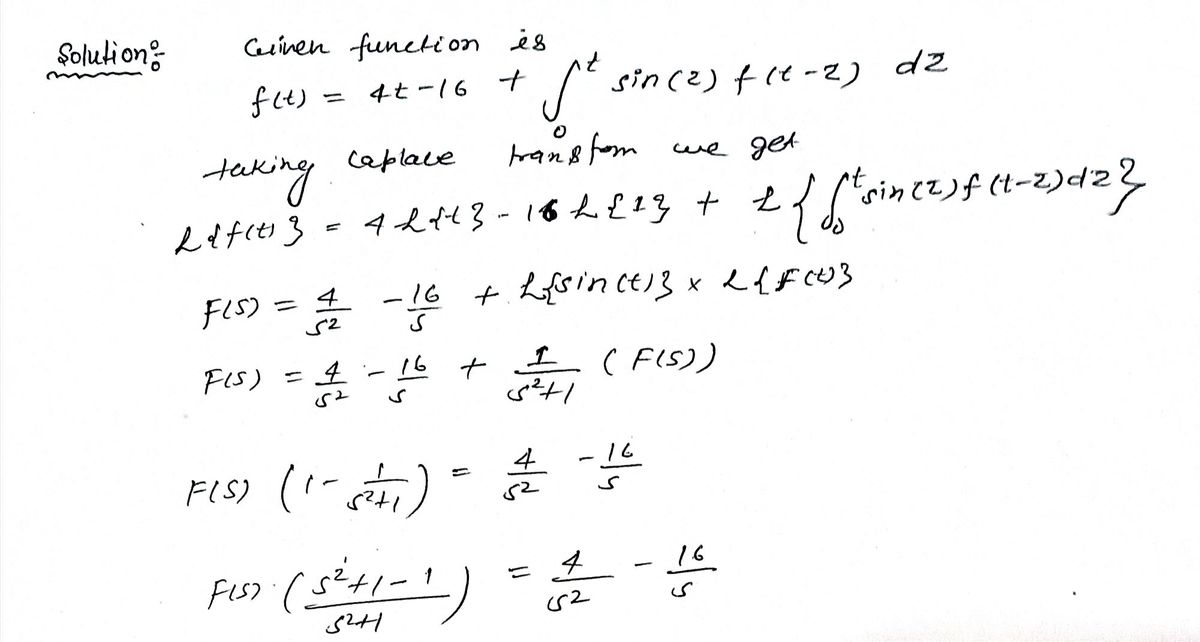 Solution:
Given function is
f(t) = 4t - 16 + ∫₀ᵗ sin(z) f(t-z) dz
taking Laplace transform we get
L{f(t)} = 4 L{t} - 16 L{1} + L{∫₀ᵗ sin(z) f(t-z) dz}
F(s) = 4/s² - 16/s + L{sin(t)} × L{F(t)}
F(s) = 4/s² - 16/s + 1/(s²+1) (F(s))
F(s) (1 - 1/(s²+1)) = 4/s² - 16/s
F(s) · ((s²+1-1)/(s²+1)) = 4/s² - 16/s